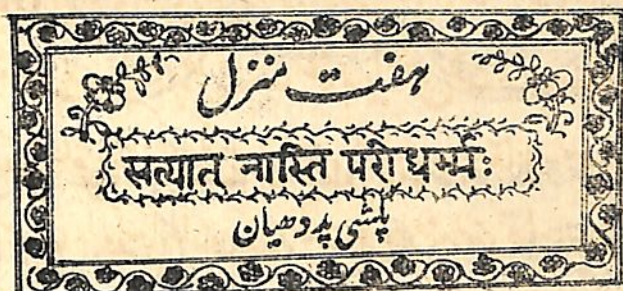 ہفت منزل
सत्यात् नास्ति परो धर्म्मः
پشی پد و ھیان